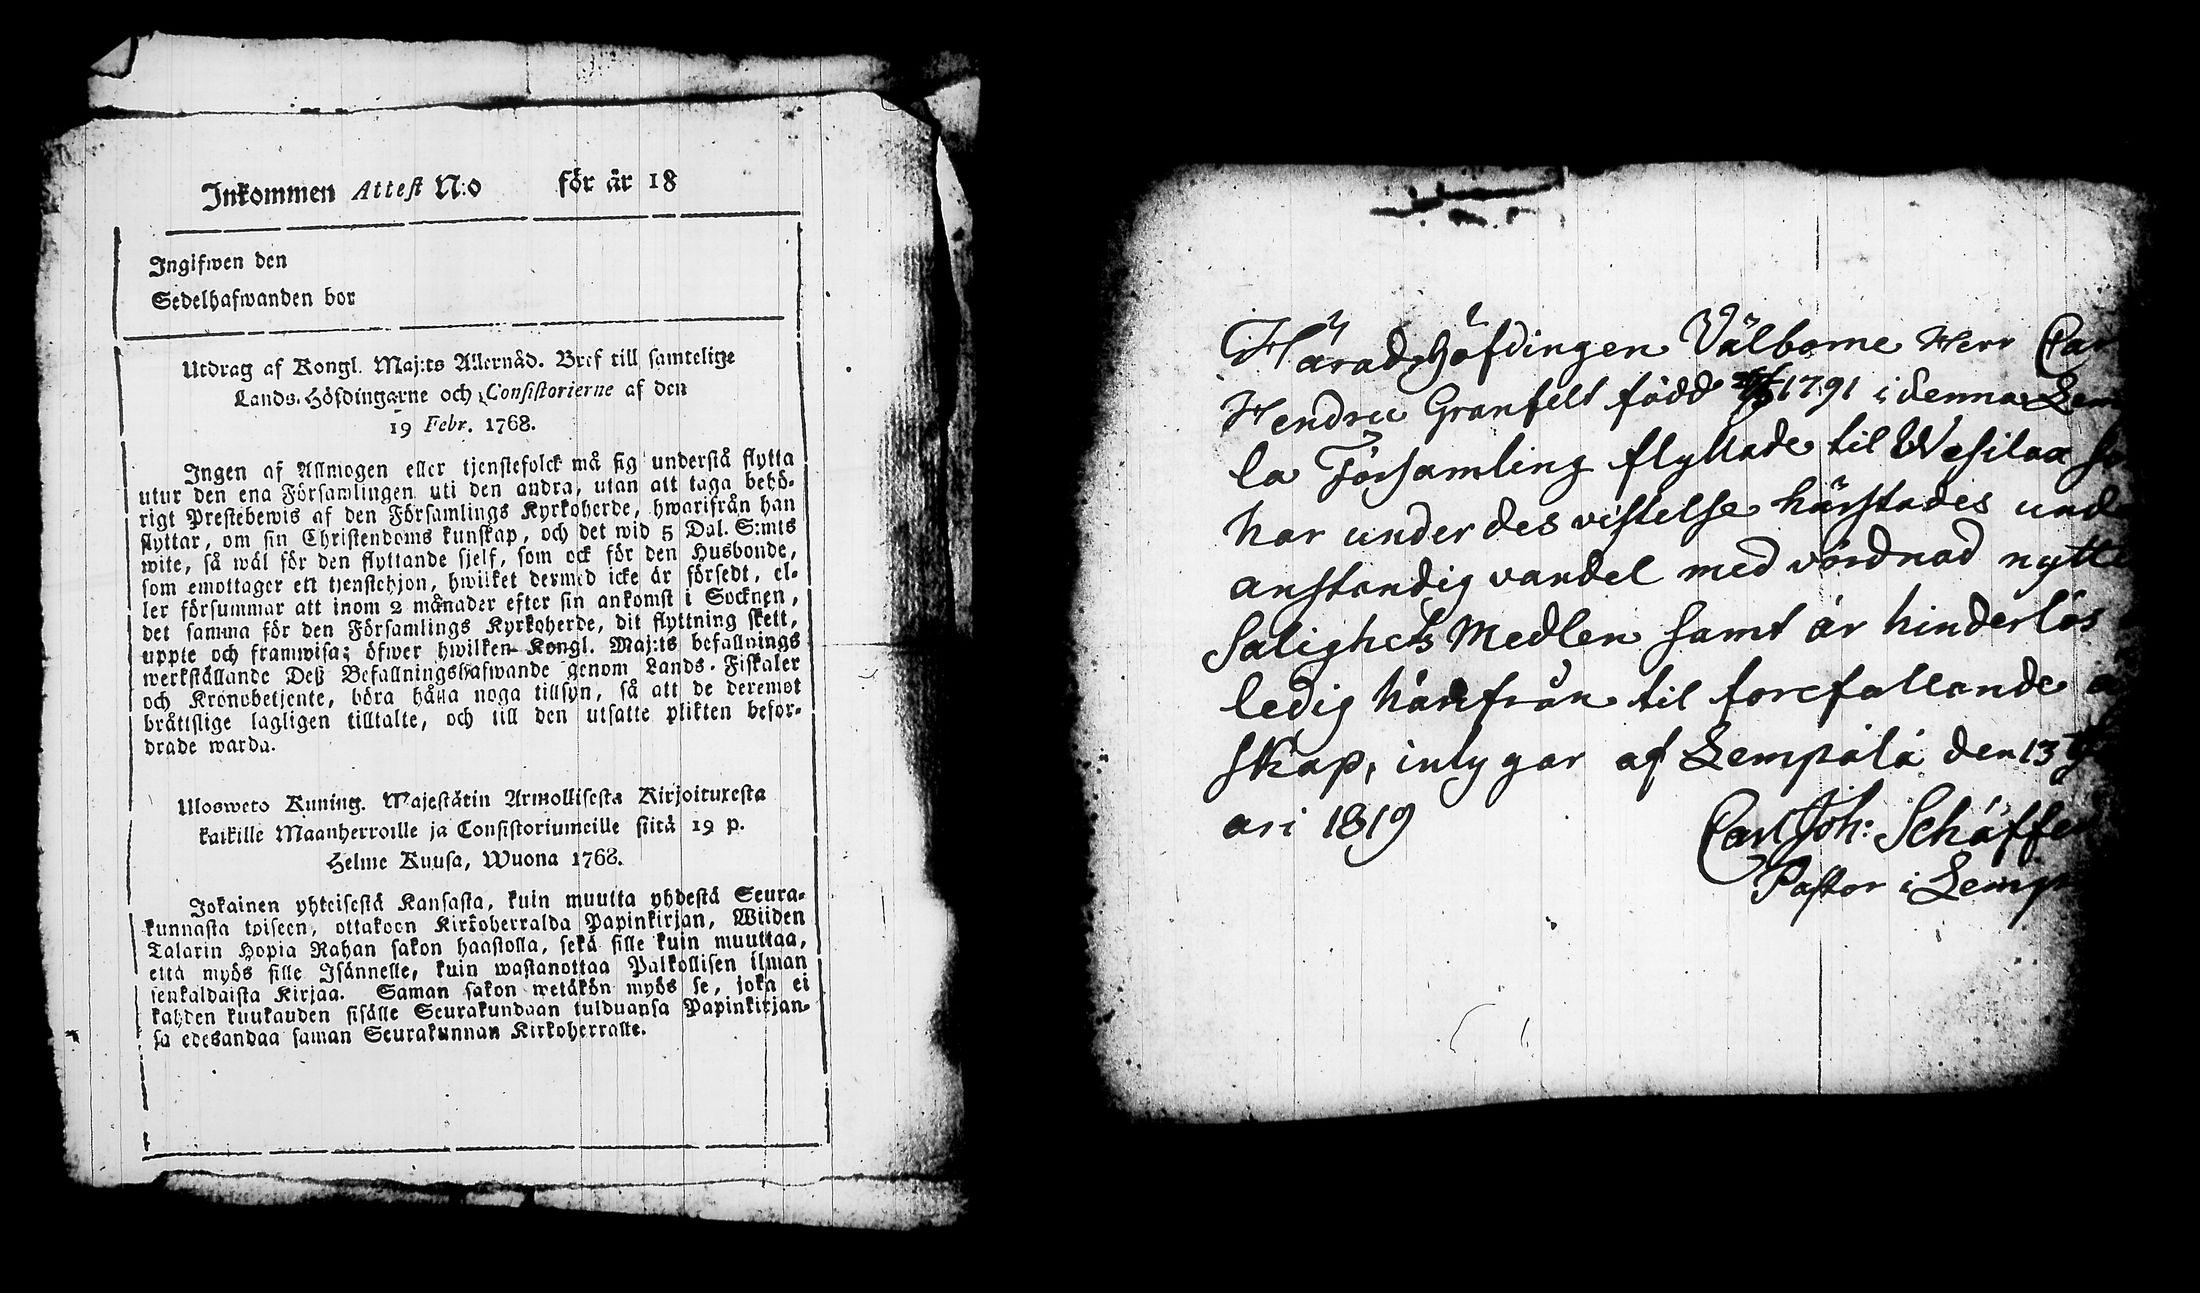 Inkommen Attest N:o för år 18
Ingifwen den
Sedelhafwanden bor
Utdrag af Kongl. Maj:ts Allernåd. Bref till samtelige
Lands-Höfdingarne och Consistorierne af den
19 Febr. 1768.
Ingen af Allmogen eller tjenstefolck må sig understå flytta
utur den ena Församlingen uti den andra, utan att taga behö-
rigt Prestebewis af den Församlings Kyrkoherde, hwarifrån han
flyttar, om sin Christendoms kunskap, och det wid 5 Dal. S:mts
wite, så wäl för den flyttande sjelf, som ock för den Husbonde,
som emottager ett tjenstehjon, hwilket dermed icke är försedt, el-
ler försummar att inom 2 månader efter sin ankomst i Socknen,
det samma för den Församlings Kyrkoherde, dit flyttning skett,
uppte och framwisa; öfwer hwilken Kongl. Maj:ts befallnings
werkställande Deß Befallningshafwande genom Lands-Fiskaler
och Kronobetjente, böra hålla noga tillsyn, så att de deremot
bråttslige lagligen tilltalte, och till den utsatte plikten befor-
drade warda.
Ulosweto Kuning. Majestätin Armollisesta Kirjoituxesta
kaikille Maanherroille ja Consistoriumeille siitä 19 p.
Helme Kuusa, Wuona 1768.
Jokainen yhteisestä Kansasta, kuin muutta yhdestä Seura-
kunnasta toiseen, ottakoon Kirkoherralda Papinkirjan, Wiiden
Talarin Hopia Rahan sakon haastolla, sekä sille kuin muuttaa,
että myös sille Isännelle, kuin wastanottaa Palkollisen ilman
senkaldaista Kirjaa. Saman sakon wetäkön myös se, joka ei
kahden kuukauden sisälle Seurakundaan tulduansa Papinkirjan-
sa edesandaa saman Seurakunnan Kirkoherralle.
Häradshöfdingen Välborne Herr Car
Hendric Granfelt född 1791 i denna Lem
la Församling flyttade til Wesilax
har under des vistelse härstädes unde
anständig vandel med vördnad nytt
Salighets Medlen samt är hinderlös
ledig härifrån til förefallande
skap, intygar af Lempälä den 13
ari 1819
Carl Joh: Schäffer
Pastor i Lemp